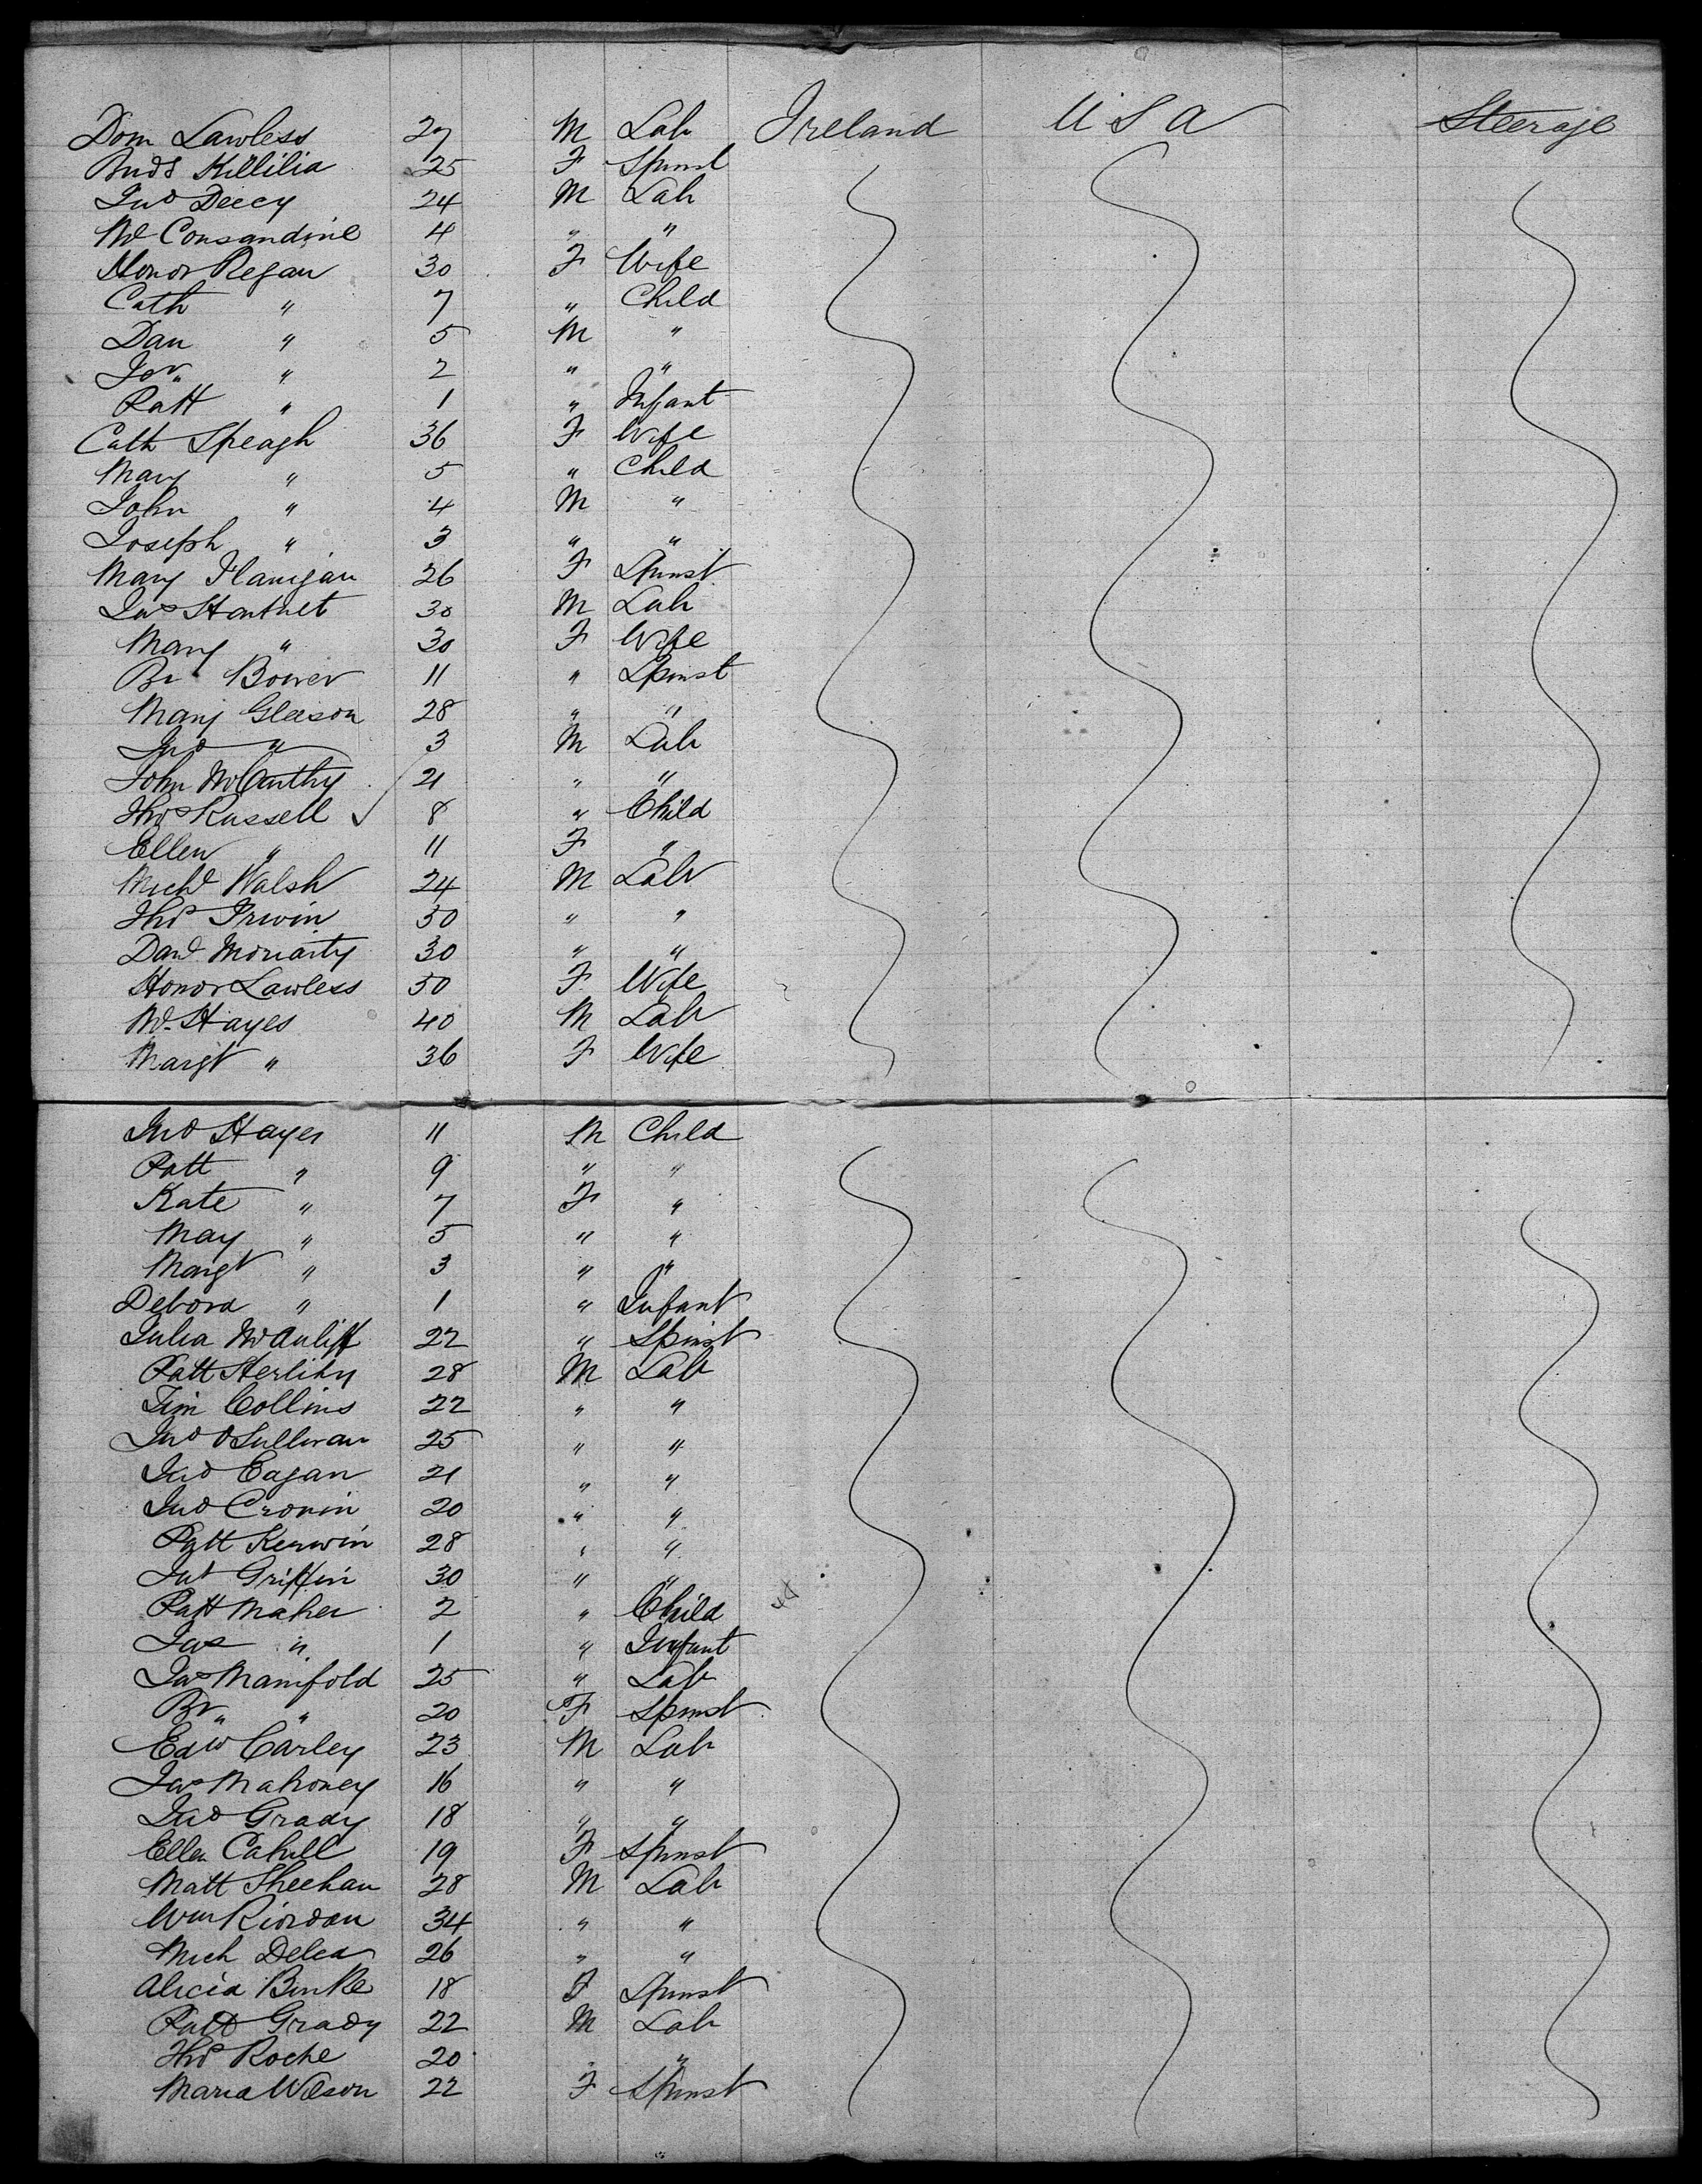 Dom Lawless 27 M Lab Ireland U S A Steerage
Bridt Killilia 25 F Spinst
Jno Deecy 24 M Lab
Ml Consandine 4 " "
Honor Regan 30 F Wife
Cath " 7 " Child
Dan " 5 M "
Jer " 2 " "
Patt " 1 " Infant
Cath Speagh 36 F Wife
Mary " 5 " Child
John " 4 M "
Joseph " 3 " "
Mary Flanigan 26 F Spinst
Jas Hartnet 30 M Lab
Mary " 30 F Wife
Br Bower 11 " Spinst
Mary Gleeson 28 " "
Jno " 3 M Lab
John McCarthy 21 " "
Thos Russell ✓ 8 " Child
Ellen " 11 F "
Michl Walsh 24 M Lab
Thos Irwin 50 " "
Danl Moriarty 30 " "
Honor Lawless 50 F Wife
Ml Hayes 40 M Lab
Margt " 36 F Wife
Jno Hayes 11 M Child
Patt " 9 " "
Kate " 7 F "
May " 5 " "
Margt " 3 " "
Debora " 1 " Infant
Julia McAuliff 22 " Spinst
Patt Herlihy 28 M Lab
Tim Collins 22 " "
Jno OSullivan 25 " "
Jno Eagan 21 " "
Jno Cronin 20 " "
Patt Kerwin 28 " "
Jno Griffin 30 " "
Patt Maher 2 " Child
Jas " 1 " Infant
Jas Manifold 25 " Lab
Br " " 20 F Spinst
Edw Carley 23 M Lab
Jas Mahoney 16 " "
Jno Grady 18 " "
Ellen Cahill 19 F Spinst
Matt Sheehan 28 M Lab
Wm Riordan 34 " "
Mich Delea 26 " "
Alicia Burke 18 F Spinst
Patt Grady 22 M Lab
Thos Roche 20 " "
Maria Wilson 22 F Spinst